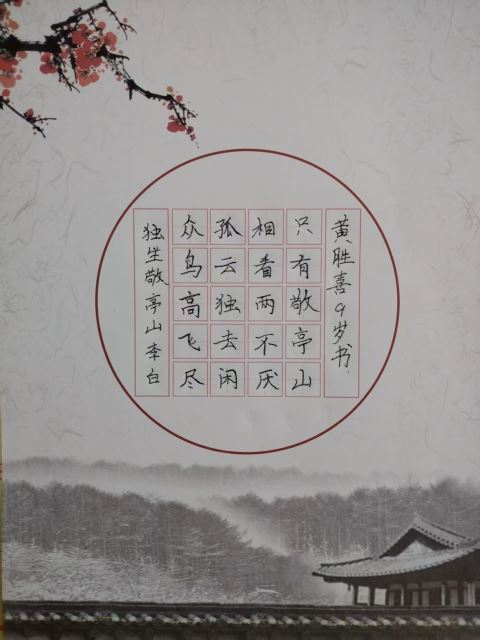 独坐敬亭山李白
众鸟高飞尽
孤云独去闲
相看两不厌
只有敬亭山
黄胜喜9岁书